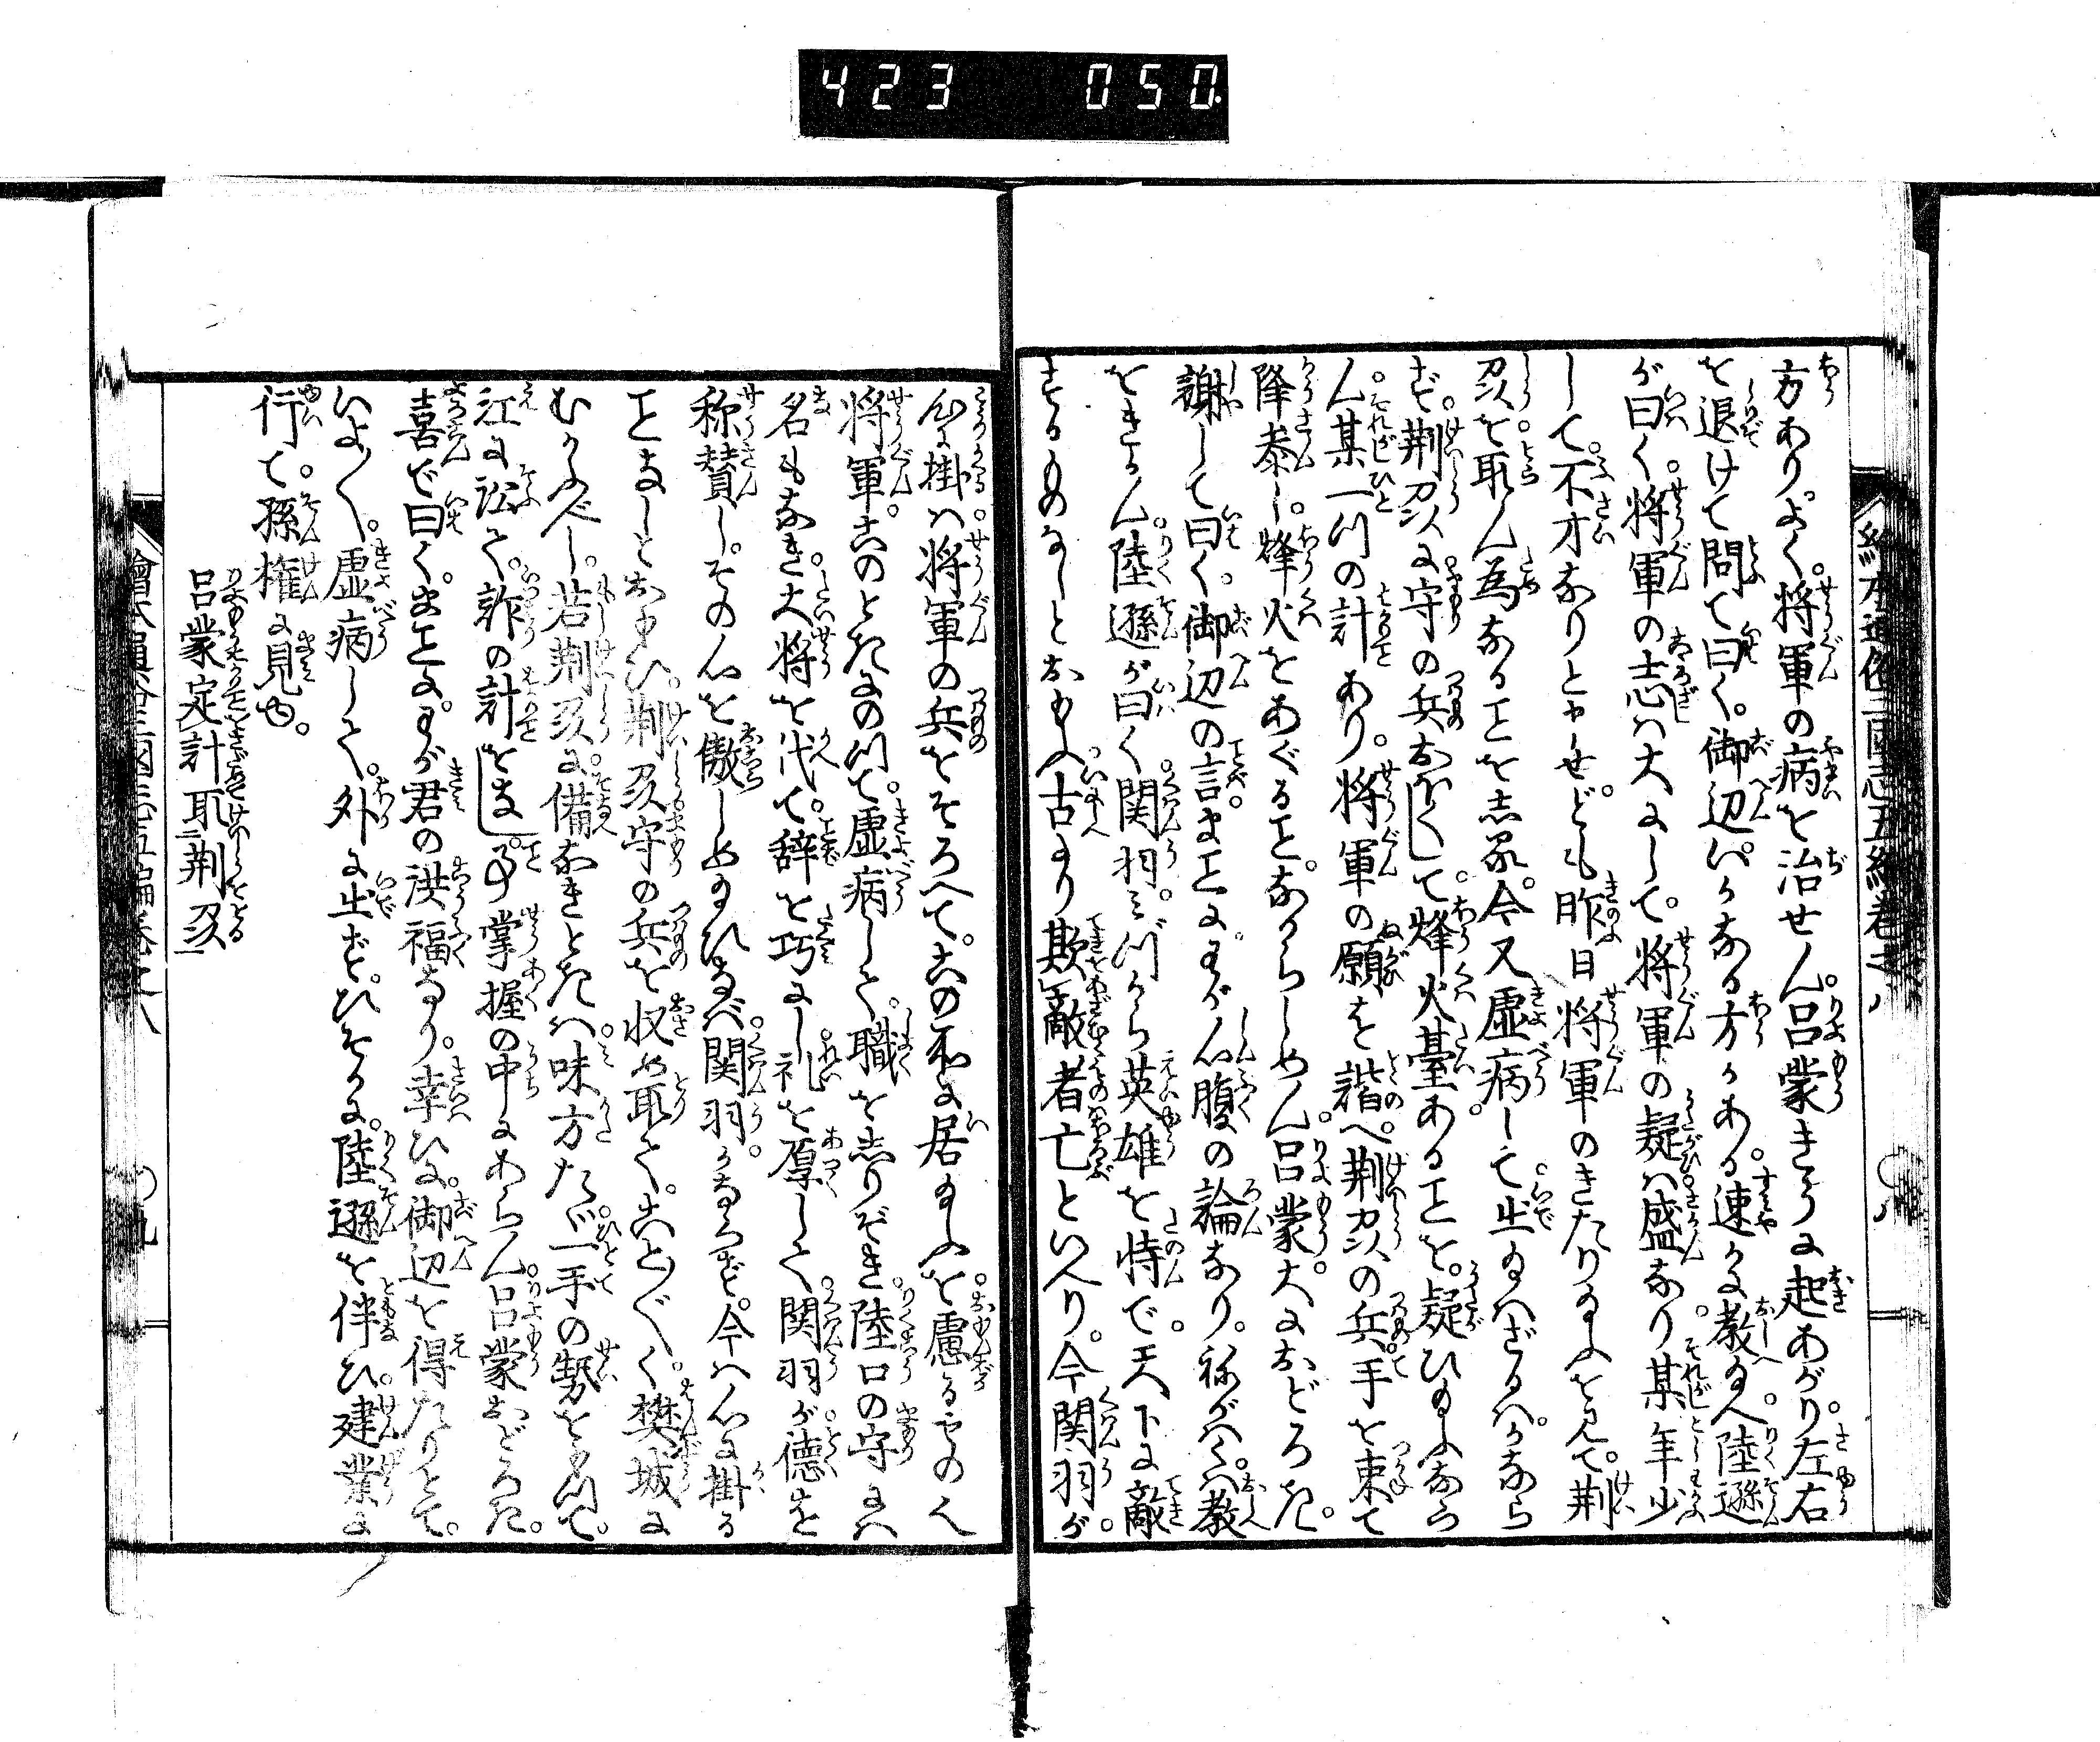 423 050
方あり。よく将軍の病を治せん。呂蒙きうに起あがり。左右
を退けて問て曰く。御辺いかなる方かある。速かに教給へ。陸遜
が曰く。将軍の志は大にして。将軍の疑は盛なり。某年少
して。不才なりと申せども。昨日将軍のきたり給ふを見て。荆
刕を取ん為なることを志る。今又虚病して出給はざるは。かなら
ず。荆刕に守の兵おほくして。烽火臺あることを。疑ひ給ふなら
ん。某一ツの計あり。将軍の願を諧へ。荆刕の兵。手を束て
降参し。烽火をあぐること。なからしめん。呂蒙。大におどろき。
謝して曰く。御辺の言まことに。わが心腹の論なり。ねがはくは教
をきかん。陸遜が曰く。関羽。みづから英雄を恃で。天下に敵
するものなしとおもへり。古より欺敵者亡といへり。今関羽が。
心に掛は。将軍の兵をそろへて。この所に居給ふを。慮るものみ。
将軍。このときにのつて。虚病して。職を志りぞき。陸口の守には
名もなき大将を代て。辞を巧にし。礼を厚して。関羽が徳を
称賛し。その心を傲しめ給ひなば。関羽。かならず。今は心に掛る
ことなしとおもひ。荆刕守の兵を収め取て。ことごとく。樊城に
むかふべし。若荆刕に備なきときは。味方たゞ一手の勢をもつて。
江に沿て。詐の計をなし。事掌握の中にあらん。呂蒙おどろき。
喜で曰く。まことに。わが君の洪福なり。幸ひに。御辺を得たりとて。
いよ〳〵。虚病して。外に出ず。ひそかに。陸遜を伴ひ。建業に
行て。孫権に見ゆ。
呂蒙定計取荆刕